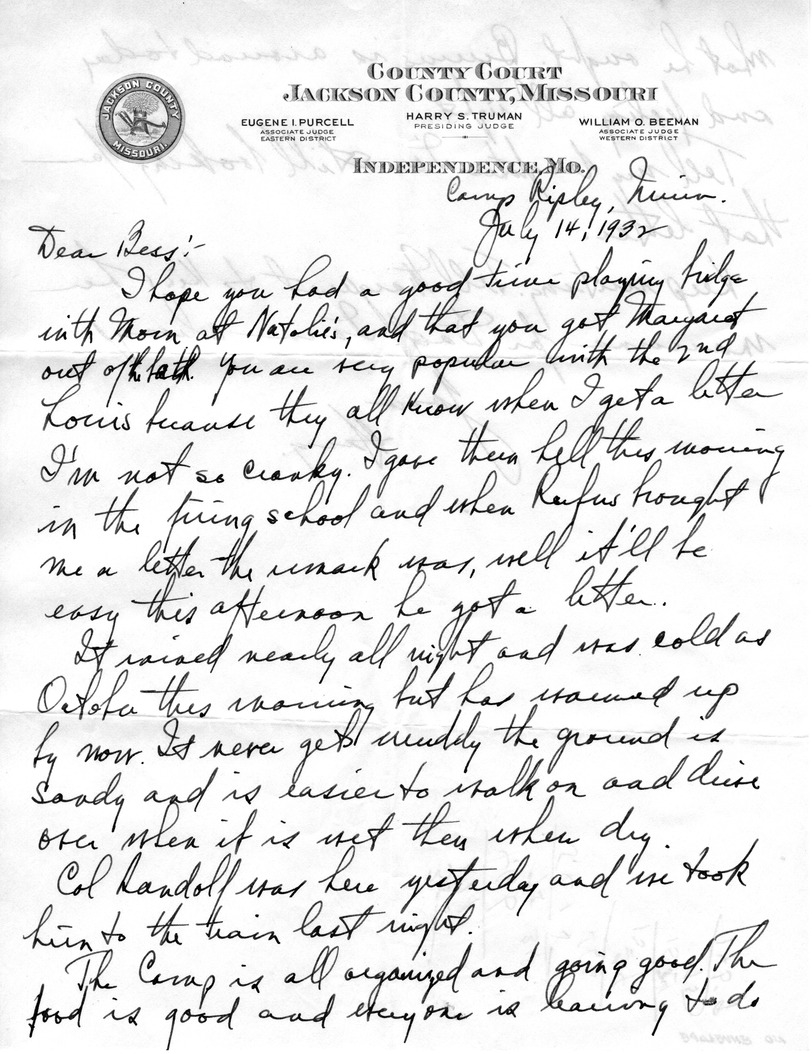 COUNTY COURT
JACKSON COUNTY, MISSOURI
JACKSON COUNTY
MISSOURI.
EUGENE I. PURCELL
ASSOCIATE JUDGE
EASTERN DISTRICT
HARRY S. TRUMAN
PRESIDING JUDGE
WILLIAM O. BEEMAN
ASSOCIATE JUDGE
WESTERN DISTRICT
INDEPENDENCE, MO.
Camp Ripley, Minn.
July 14, 1932
Dear Bess:-
I hope you had a good time playing bridge
with Mom at Natalie's, and that you got Margaret
out of the bath. You are very popular with the 2nd
Louis because they all know when I get a letter
I'm not so cranky. I gave them hell this morning
in the firing school and when Rufus brought
me a letter the remark was, well it'll be
easy this afternoon he got a letter.
It rained nearly all night and was cold as
October this morning but has warmed up
by now. It never gets muddy the ground is
sandy and is easier to walk on and drive
over when it is wet then when dry.
Col was here yesterday and we took
him to the train last night.
The Camp is all organized and going good. The
food is good and everyone is learning to do